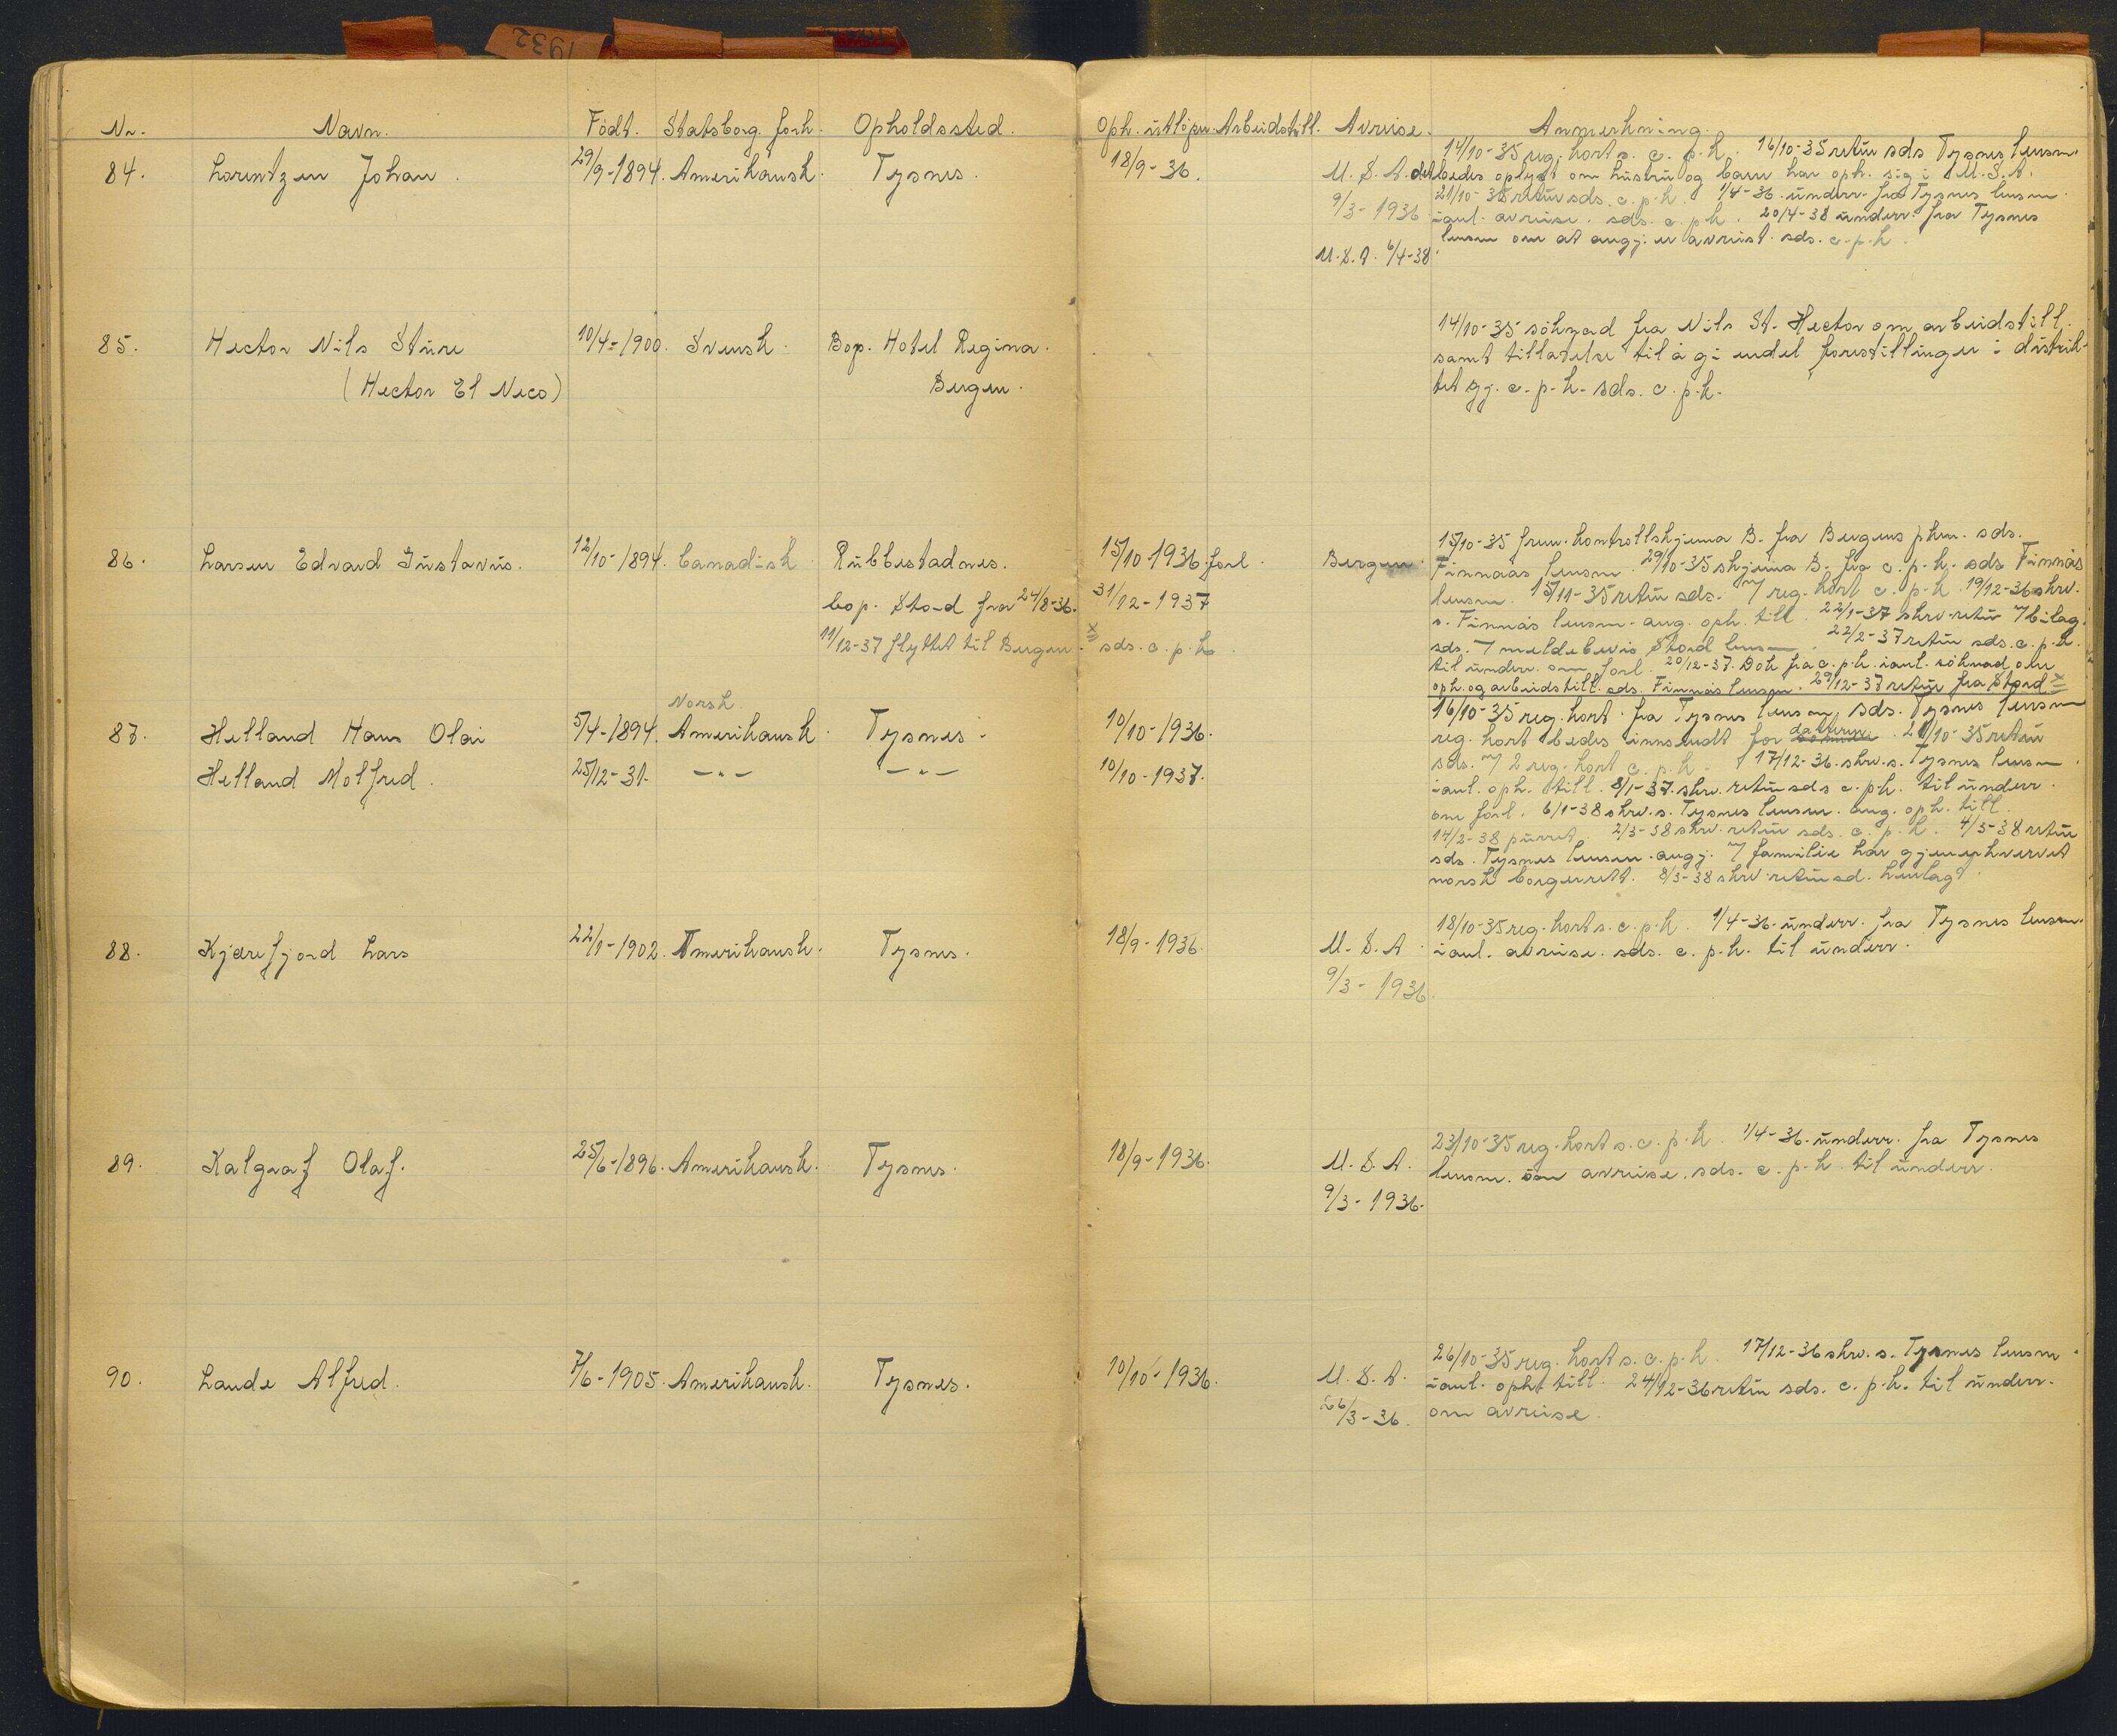 1932
Nr. Navn. Född. Statsborg. forh. Opholdssted. Oph. utlöper. Arbeidstill. Avreise. Anmerkning.
84. Lorentzen Johan. 29/9-1894. Amerikansk. Tysnes. 18/9-36. U.S.A.
9/3-1936
U.S.A. 6/4-38.
14/10-35 reg. kort s. c. p. k. 16/10-35 retur sds Tysnes lensm.
det bedes oplyst om hustru og barn har oph. sig i U.S.A.
21/10-35 retur sds. c. p. k. 1/4-36. underr. fra Tysnes lensm.
ianl. avreise. sds. c. p. k. 20/4-38 underr. fra Tysnes
lensm om at angj. er avreist. sds. c. p. k.
85. Hector Nils Sture 10/4-1900. Svensk. Bop. Hotel Regina.
(Hector El Neco) Bergen.
14/10-35 söknad fra Nils St. Hector om arbeidstill.
samt tillatelse til å gi endel forestillinger i distrik-
tet gj. c. p. k. sds. c. p. k.
86. Larsen Edvard Gustavus. 12/10-1894. Canadisk Rubbestadnes. 15/10-1936. forl. Bergen.
bop. Stord fra 24/8-36. 31/12-1937
11/12-37 flyttet til Bergen. x sds. c. p. k.
15/10-35 frem. kontrollskjema B. fra Bergens pkm. sds.
Finnaas lensm. 29/10-35 skjema B. fra c. p. k. sds Finnås
lensm. 15/11-35 retur sds. 7 reg. kort c. p. k. 19/12-36 skrv.
s. Finnås lensm. ang. oph. till. 22/1-37 skrv. retur 7 bilag.
sds. 7 meldebevis Stord lensm. 22/2-37 retur sds. c. p. k.
til underr. om forl. 20/12-37. Dok fra c. p. k. ianl. söknad om
oph. og arbeidstill. sds. Finnås lensm. 29/12-37 retur fra Stord x
87. Helland Hans Olai 5/4-1894. Norsk. Amerikansk. Tysnes. 10/10-1936.
Helland Molfred. 25/12-31. -"- -"- 10/10-1937.
16/10-35 reg. kort. fra Tysnes lensm, sds. Tysnes lensm
reg. kort bedes innsendt for datteren. 21/10-35 retur
sds. 7 2 reg. kort c. p. k. 17/12-36. skrv. s. Tysnes lensm.
ianl. oph. till. 8/1-37. skrv. retur sds c. p. k. til underr.
om forl. 6/1-38 skrv. s. Tysnes lensm. ang. oph. till.
14/2-38 purret. 2/3-38 skrv. retur sds. c. p. k. 4/3-38 retur
sds. Tysnes lensm. angj. 7 familie har gjenerhvervet
norsk borgerrett. 8/3-38 skrv. retur sd. henlagt.
88. Kjærefjord Lars 22/1-1902. Amerikansk. Tysnes. 18/9-1936. U.S.A.
9/3-1936.
18/10-35 reg. kort s. c. p. k. 1/4-36. underr. fra Tysnes lensm.
ianl. avreise. sds. c. p. k. til underr.
89. Kalgraf Olaf. 25/6-1896. Amerikansk. Tysnes. 18/9-1936. U.S.A.
9/3-1936.
23/10-35 reg. kort s. c. p. k. 1/4-36. underr. fra Tysnes
lensm. om avreise. sds. c. p. k. til underr.
90. Lande Alfred. 7/6-1905. Amerikansk. Tysnes. 10/10-1936. U.S.A.
26/3-36.
26/10-35 reg. kort s. c. p. k. 17/12-36 skrv. s. Tysnes lensm.
ianl. oph. till. 24/12-36 retur sds. c. p. k. til underr.
om avreise.